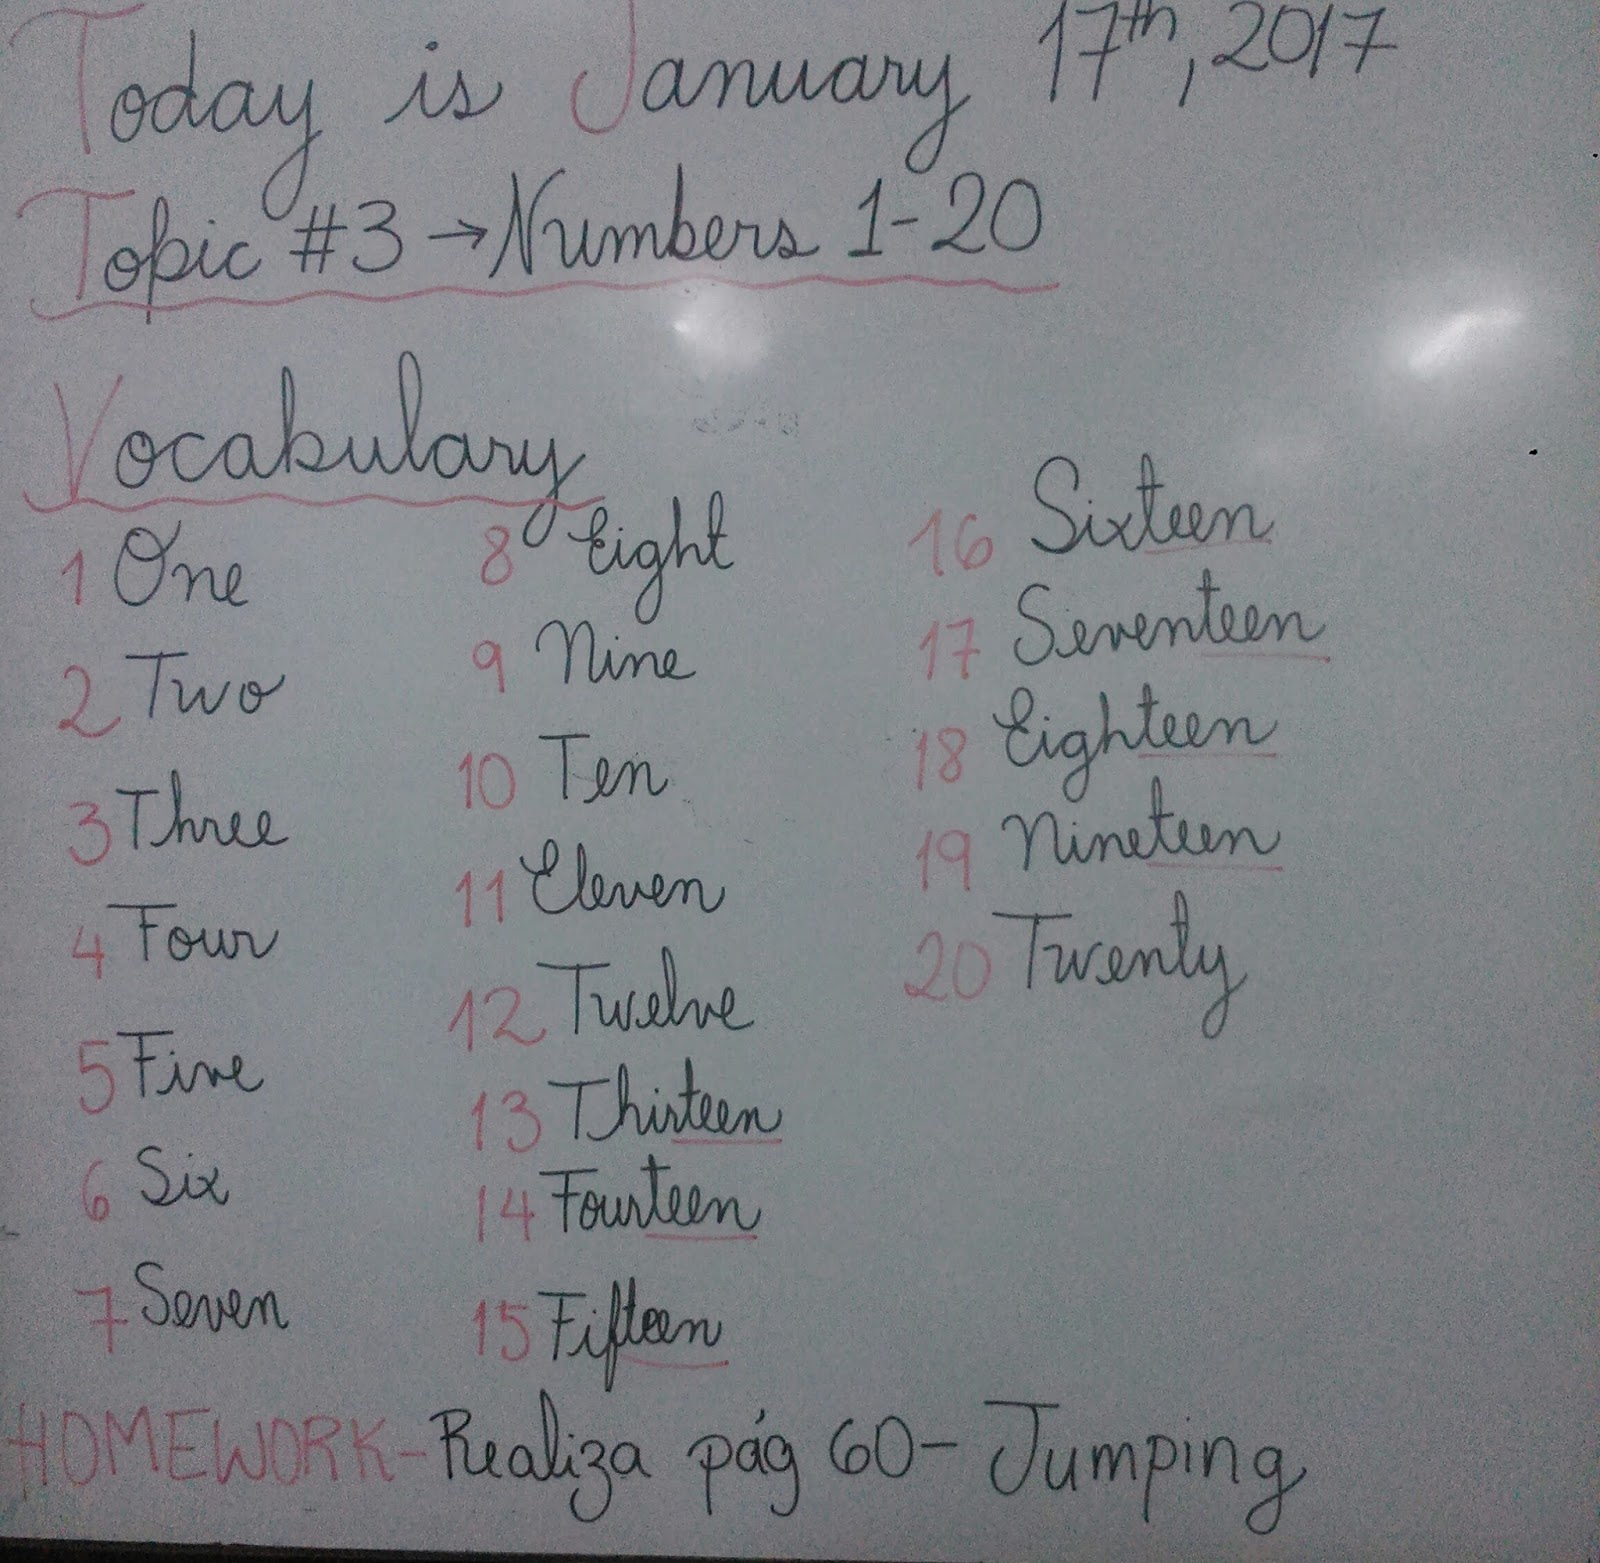 Today is January 17th, 2017
Topic #3 → Numbers 1-20
Vocabulary
1 One
2 Two
3 Three
4 Four
5 Five
6 Six
7 Seven
8 Eight
9 Nine
10 Ten
11 Eleven
12 Twelve
13 Thirteen
14 Fourteen
15 Fifteen
16 Sixteen
17 Seventeen
18 Eighteen
19 Nineteen
20 Twenty
HOMEWORK- Realiza pág 60- Jumping